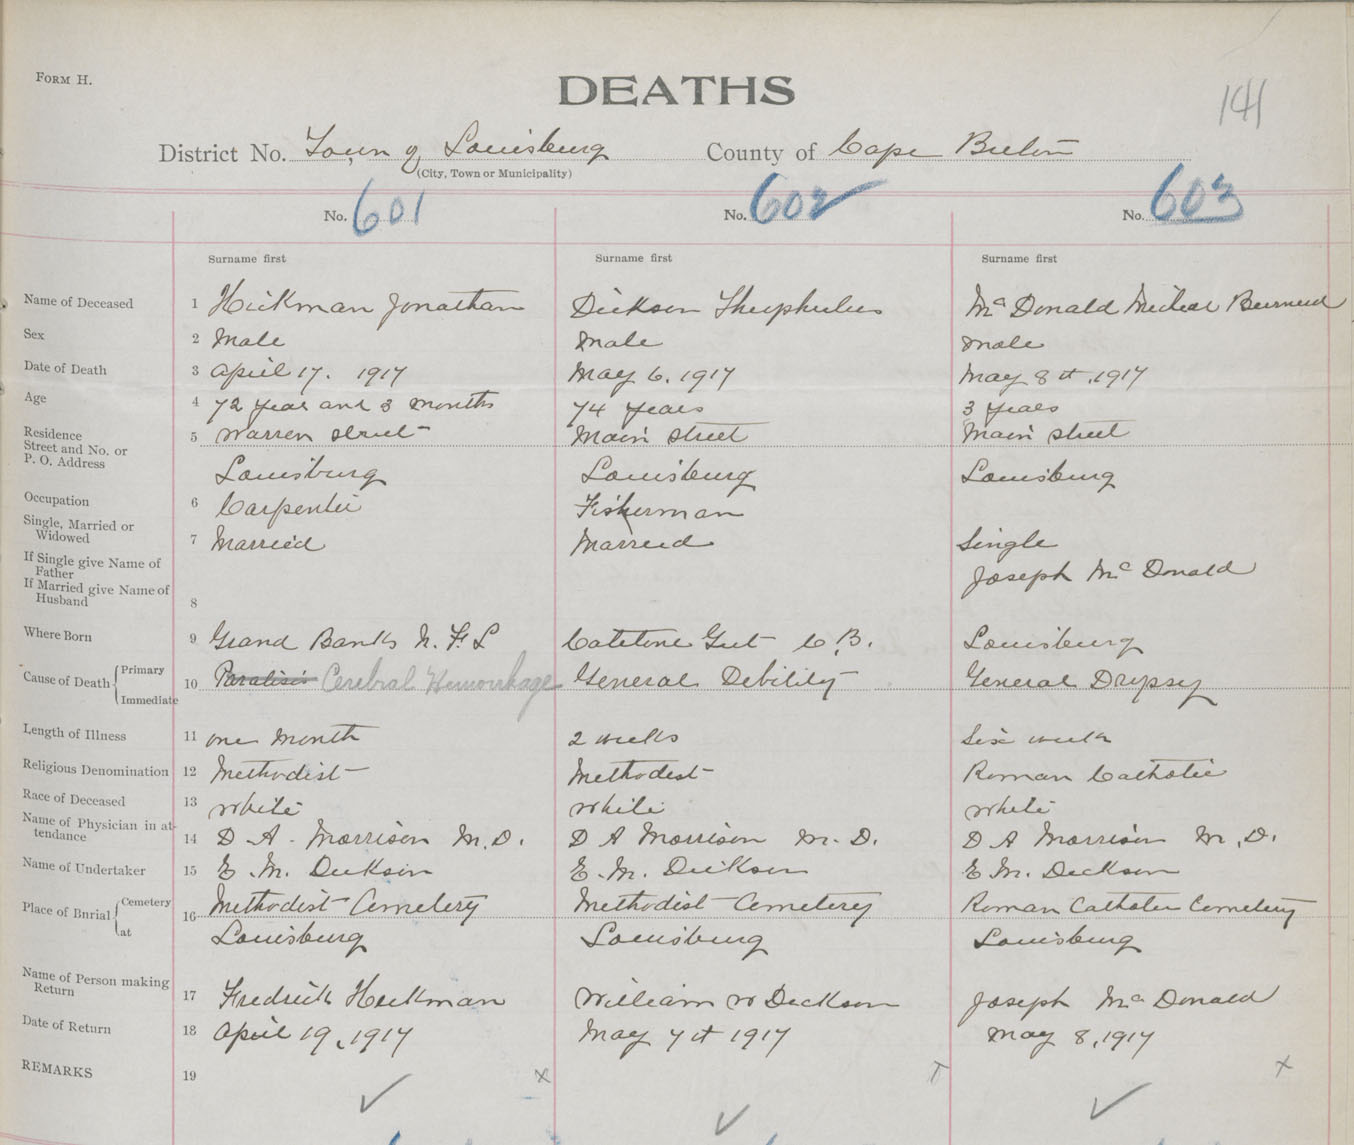 FORM H.
DEATHS
141
District No. Town of Louisburg County of Cape Breton
(City, Town or Municipality)
No. 601 No. 602 No. 603
Surname first Surname first Surname first
Name of Deceased 1 Hickman Jonathan Dickson Theophulus Mc Donald Micheal Burnerd
Sex 2 Male Male Male
Date of Death 3 April 17. 1917 May 6, 1917 May 8th, 1917
Age 4 72 year and 3 months 74 years 3 years
Residence 5 Warren street Main street Main street
Street and No. or
P. O. Address Louisburg Louisburg Louisburg
Occupation 6 Carpenter Fisherman
Single, Married or
Widowed 7 Married Married Single
If Single give Name of
Father Joseph Mc Donald
If Married give Name of
Husband 8
Where Born 9 Grand Banks N. F. L Catetone Gut C. B. Louisburg
Cause of Death Primary
Immediate 10 Paralisis Cerebral Hemorrhage General Debility General Dropsy
Length of Illness 11 one Month 2 weeks Six weeks
Religious Denomination 12 Methodist Methodist Roman Catholic
Race of Deceased 13 White White White
Name of Physician in at-
tendance 14 D. A. Morrison M. D. D A Morrison M. D. D A Morrison M. D.
Name of Undertaker 15 E. M. Dickson E. M. Dickson E M. Dickson
Place of Burial Cemetery 16 Methodist Cemetery Methodist Cemetery Roman Catholic Cemetery
at Louisburg Louisburg Louisburg
Name of Person making
Return 17 Fredrick Hickman William W Dickson Joseph Mc Donald
Date of Return 18 April 19, 1917 May 7th 1917 May 8, 1917
REMARKS 19